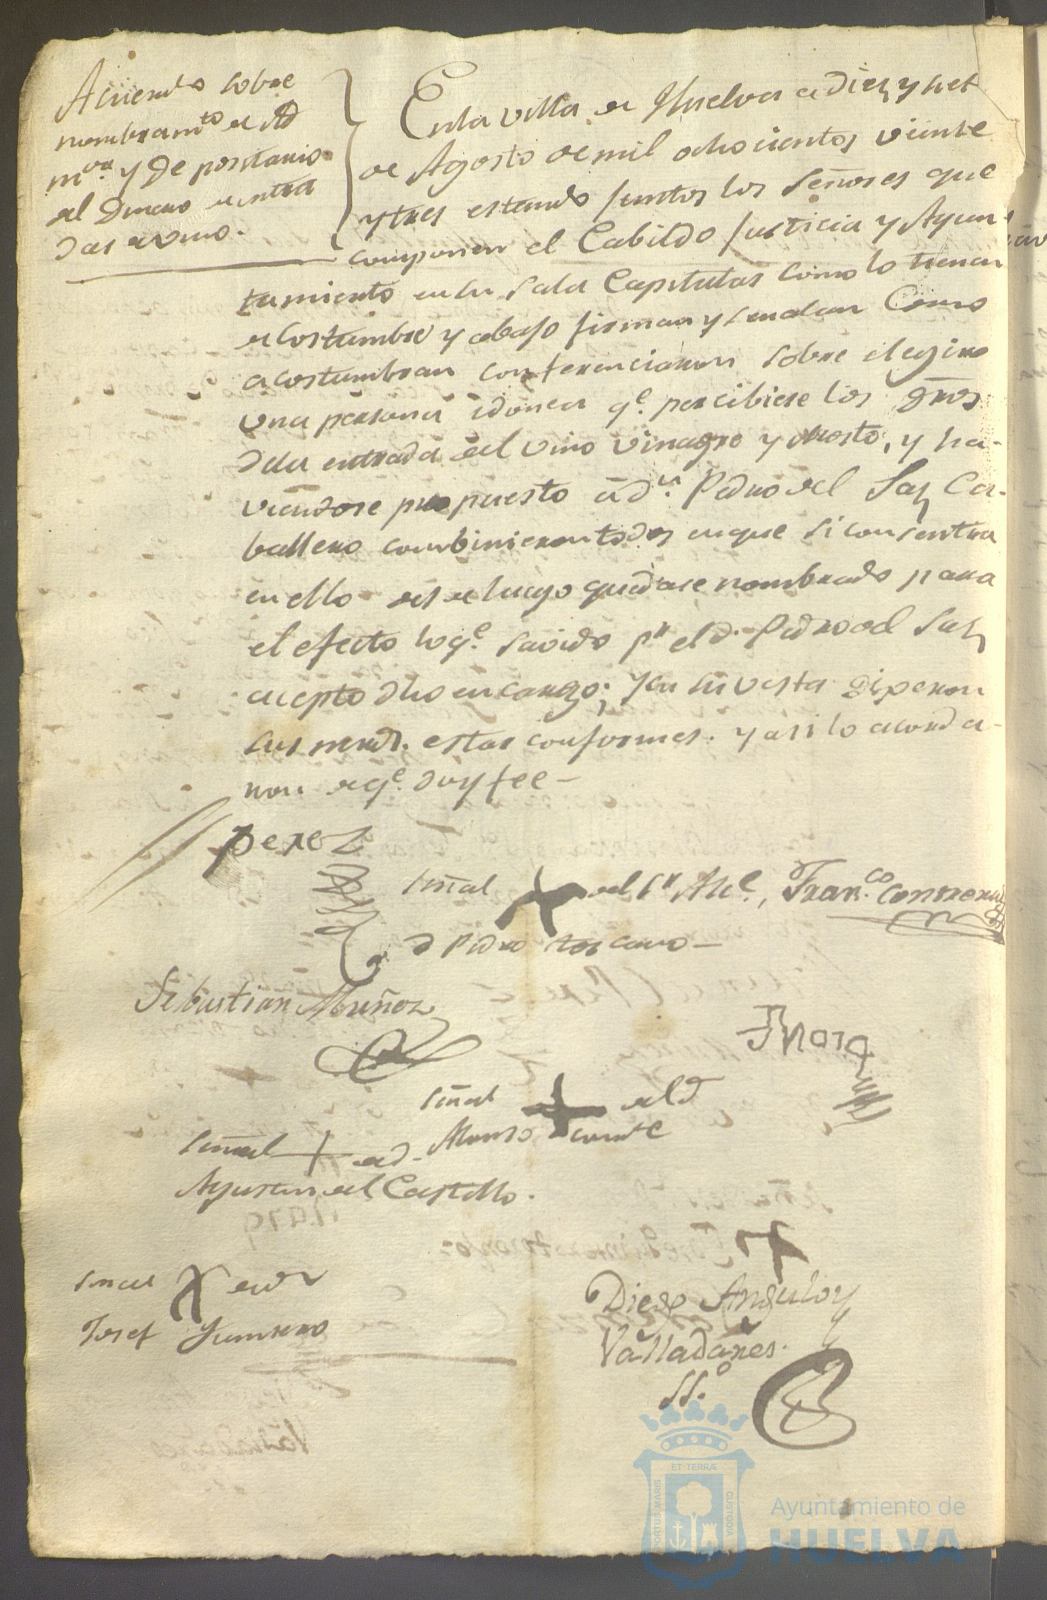 Acuerdo sobre
nombramto de Ad
mor y Depositario
del Dinero de entra
das de vino.
En la villa de Huelva a diez y siet
de Agosto de mil ochocientos veinte
y tres estando juntos los Señores que
componen el Cabildo Justicia y Ayun-
tamiento en su Sala Capitular como lo tienen
de costumbre y abajo firman y señalan Como
acostumbran conferenciaron sobre elegir
una persona idonea qe. percibiese los dros
de la entrada del vino vinagre y Mosto, y ha-
viendose propuesto a dn. Pedro del Saz Ca-
ballero combinieron todos en que si consentia
en ello desde luego quedase nombrado para
el efecto lo qe. savido pr el d. Pedro del Saz
acepto dho encargo; y en su vista Dixeron
sus mrds. estar conformes. y asi lo acorda-
ron de qe. doy fee—
Perez
Señal del Sr Alce., Franco. Contreras
d Pedro Toscano—
Sebastian Muñoz
Mora
Señal de d
Alonso
Señal de d.
Agustin del Castillo.
Señal de dn
Josef
Diego Angulo y
Valladares.
SSo.
ET TERRÆ
PORTUS MARIS
CUSTODIA
Ayuntamiento de
HUELVA